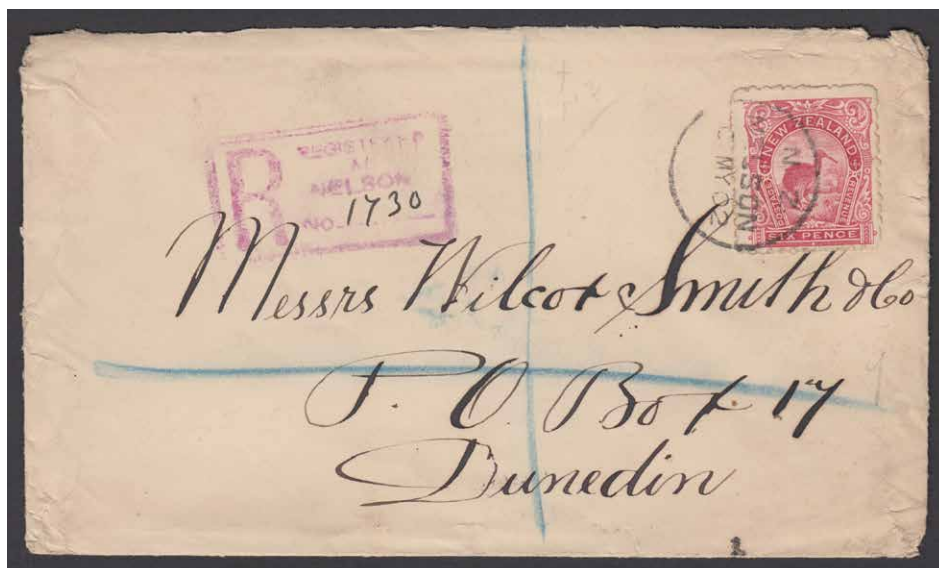 R
REGISTERED
AT
NELSON
No. 1730
NEW ZEALAND
POSTAGE
REVENUE
SIX PENCE
MY 02
Messrs Wilcox & Smith & Co
P. O. Box 17
Dunedin